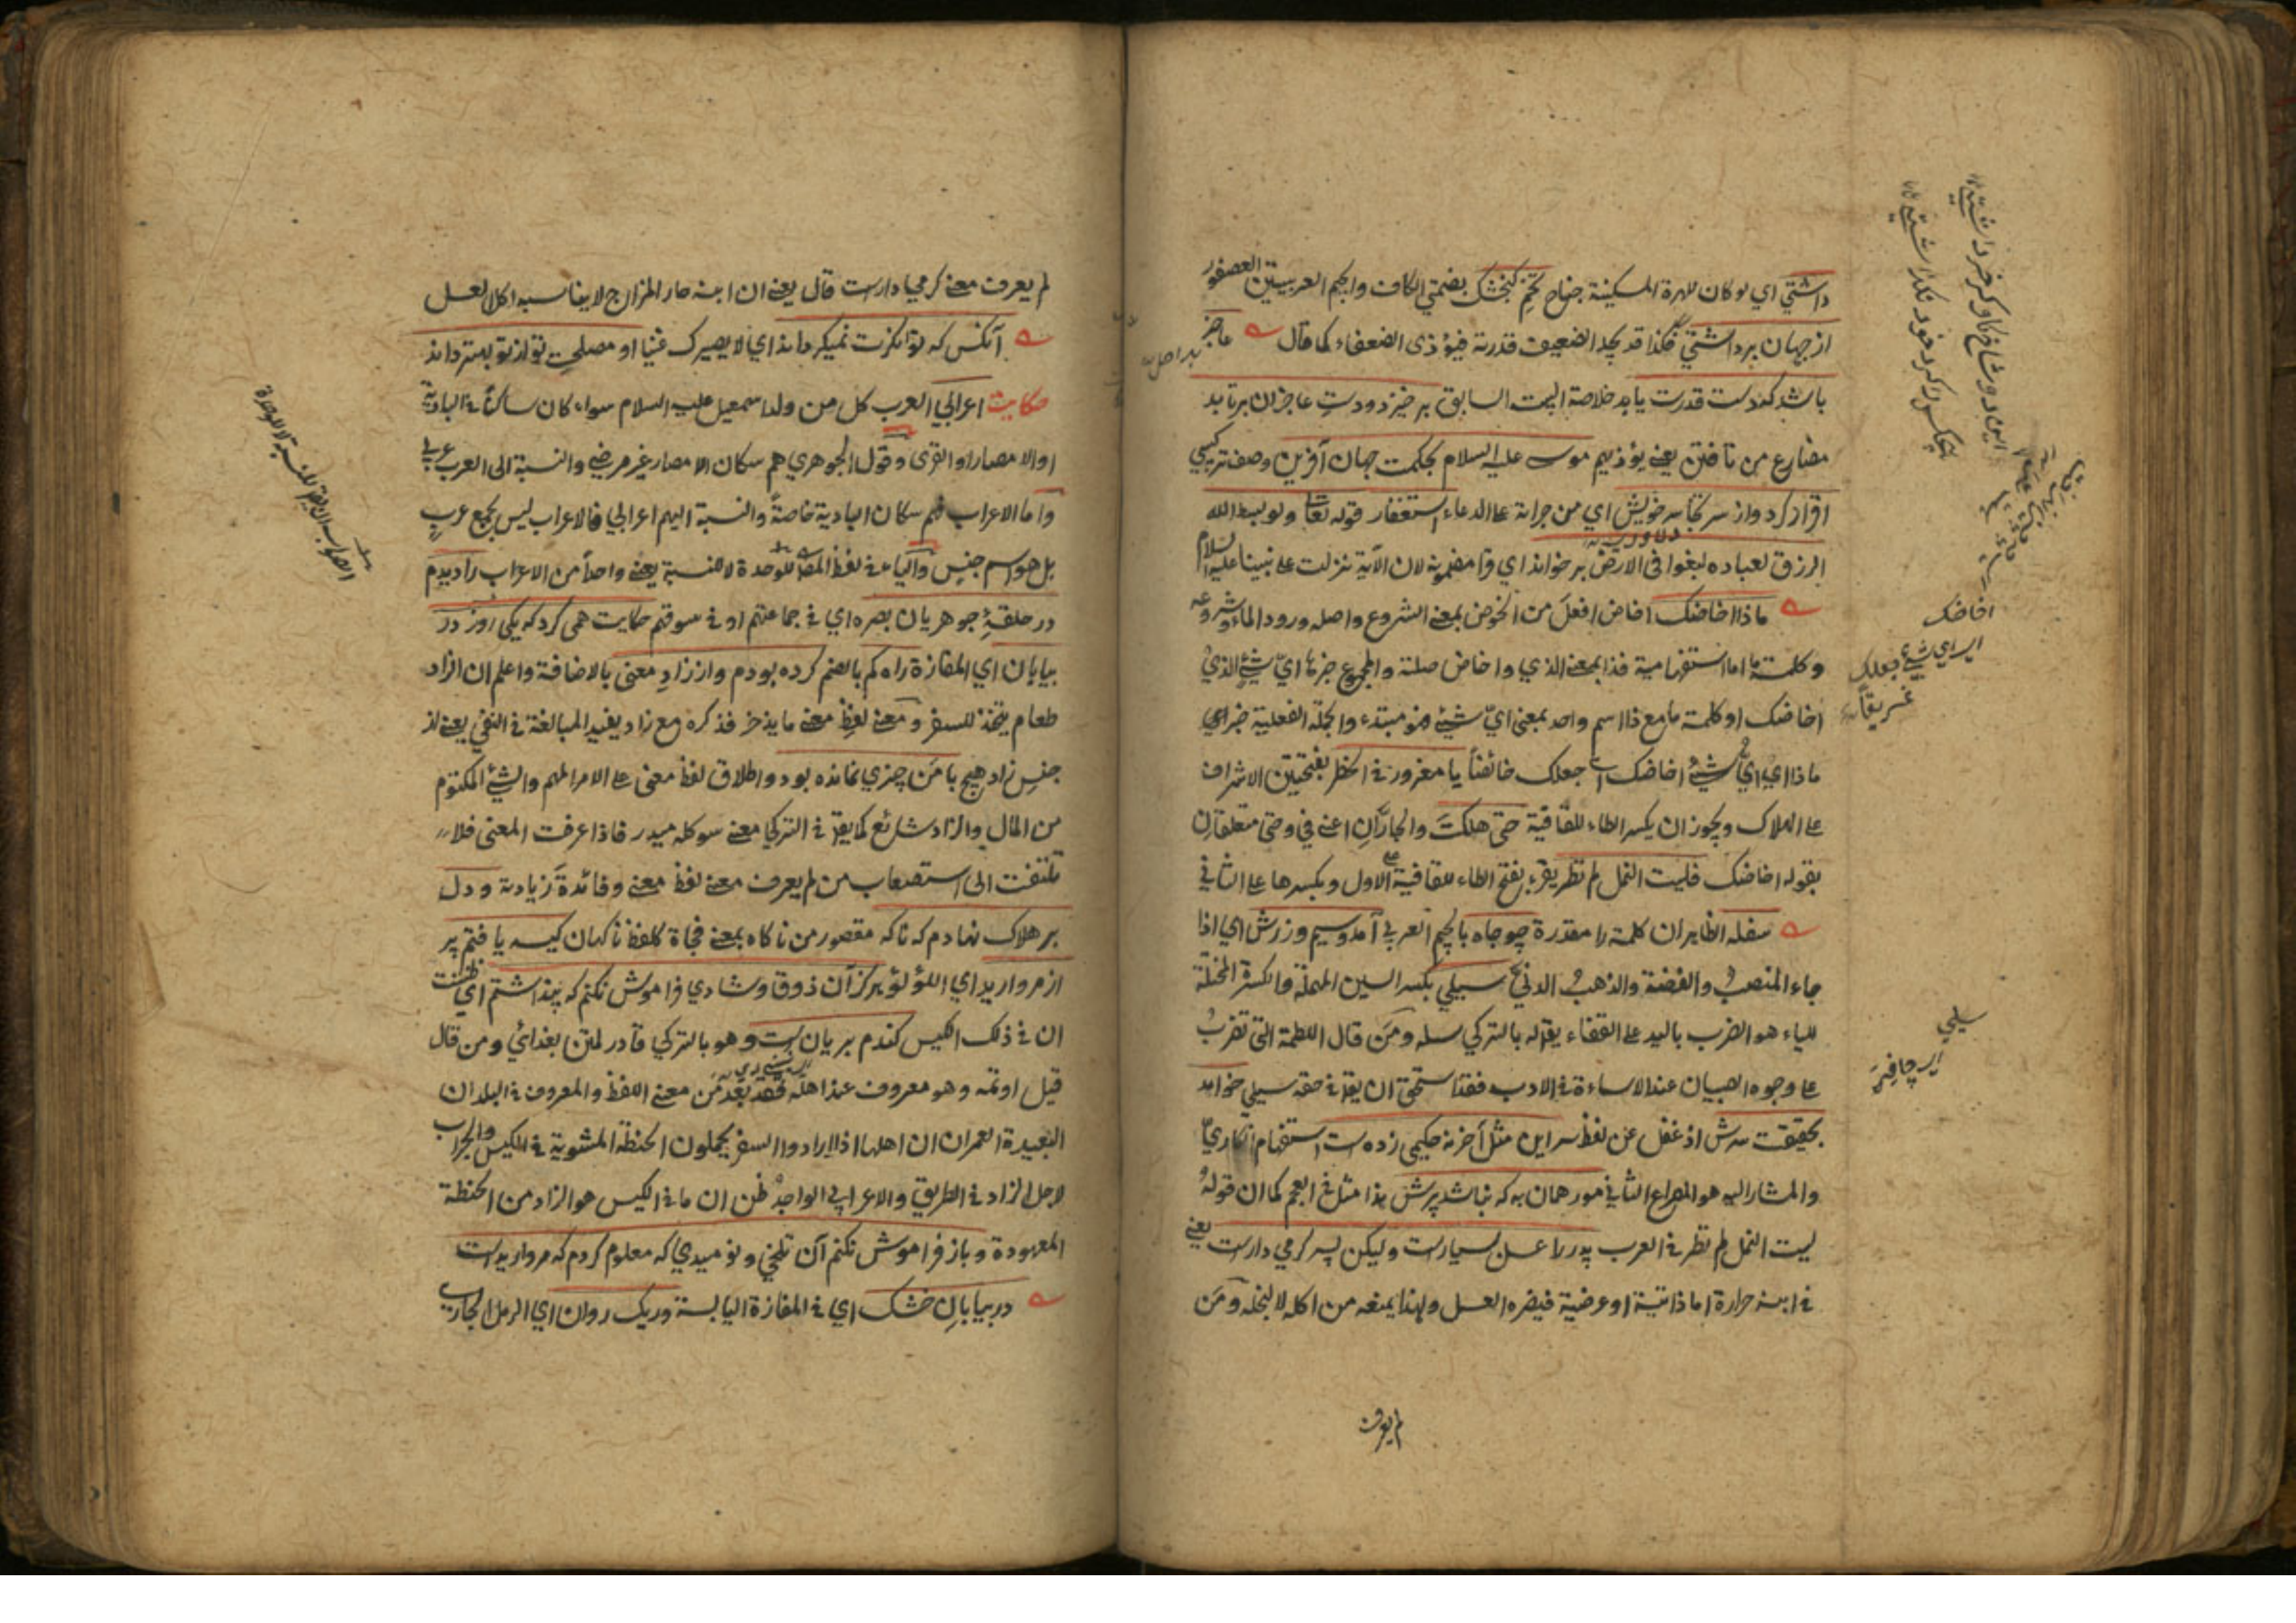 داشتي اي لو كان للهرة المسكينة جناح تخم كنجشك بضمتي الكاف والجيم العربيتين العصفور
از جهان برداشتي فكذا قد يجد الضعيف قدرة فيؤذى الضعفاء كما قال عاجز
باشد كه دست قدرت يابد خلاصة البيت السابق برخيزد ودست عاجزان برتابد
مضارع من تافتن يعني يؤذيهم موسى عليه السلام بحكمت جهان آفرين وصف تركيبي
اقرار كرد واز سر تجاسر خويش اي من جراءة على الدعاء استغفار قوله تعا ولو بسط الله
الرزق لعباده لبغوا في الارض بر خواند اي وقا مضمونه لان الآية نزلت على نبينا عليه السلام
ماذا اخاضك اخاض افعل من الخوض بمعنى الشروع واصله ورود الماء وشروعه
وكلمة ما اما استفهامية فذا بمعنى الذي واخاض صلته والمجموع جزها اي شيء الذي
اخاضك او كلمة ما مع ذا اسم واحد بمعنى اي شيء هو مبتدء والجملة الفعلية خبر اي
ماذا اي اي شيء اخاضك اي جعلك خائضا يا مغرور في الخطر بفتحتين الاشراف
على الهلاك ويجوز ان يكسر الطاء للقافية حتى هلكت والجاران اعني في وحتى متعلقان
بقوله اخاضك فليت النمل لم تطر يقرء بفتح الطاء للقافية على الاول وبكسرها على الثاني
سفله الظاهر ان كلمة را مقدرة چو جاه بالجيم العربي آمد وسيم وزرش اي اذا
جاء المنصب والفضة والذهب الدنئ سيلي بكسر السين المهملة والكسرة المختلة
للياء هو الضرب باليد على القفاء يقا له بالتركي سله ومن قال اللطمة التي تضرب
على وجوه الصبيان عند الاساءة في الادب فقد استحق ان يقا في حقه سيلي خواهد
بحقيقت سرش اذ غفل عن لفظ سر اين مثل آخر نه حكيمي زده است استفهام انكاري
والمشار اليه هو المصراع الثاني مور همان به كه نباشد پرش هذا مثل في العجم كما ان قوله
ليت النمل لم تطر في العرب پدر را عسل بسيارست وليكن پسر كرمي دارست يعني
في ابنه حرارة اما ذاتية او عرضية فيضره العسل ولهذا يمنعه من اكله لا لبخله ومن
لم يعرف
اخاضك
اي اي شيء جعلك
غريقا
سيلي
لم يعرف معنى كرمي دارست قال يعني ان ابنه حار المزاج لا يناسبه اكل العسل
آنكس كه توانكرت نميكرداند اي لا يصيرك غنيا او مصلحت تو از تو بهتر داند
حكايت اعرابي العرب كل من ولد اسمعيل عليه السلام سواء كان ساكنا في البادية
او الامصار او القرى وقول الجوهري هم سكان الامصار غير مرضي والنسبة الى العرب عربي
واما الاعراب فهم سكان البادية خاصة والنسبة اليهم اعرابي فالاعراب ليس بجمع عرب
بل هو اسم جنس والياء في لفظ المص للوحدة لا للنسبة يعني واحدا من الاعراب را ديدم
در حلقۀ جوهريان بصره اي في جماعتهم او في سوقهم حكايت همى كرد كه يكى روز در
بيابان اي المفازة راه كم بالضم كرده بودم واز زاد معنى بالاضافة واعلم ان الزاد
طعام يتخذ للسفر ومعنى لفظ معنى ما يذخر فذكره مع زاد يفيد المبالغة في النفي يعني از
جنس زاد هيچ با من چيزي نمانده بود واطلاق لفظ معنى على الامر المهم والشيء المكتوم
من المال والزاد شائع كما يقا في التركي معنى سوكله ميدر فاذا عرفت المعنى فلا
تلتفت الى استصعاب من لم يعرف معنى لفظ معنى وفائدة زيادته ودل
بر هلاك نهادم كه ناكه مقصور من ناكاه بمعنى فجاة كلفظ ناكهان كيسه يافتم پر
از مرواريد اي اللؤلؤ هركز آن ذوق وشادي فراموش نكنم كه پنداشتم اي ظننت
ان في ذلك الكيس كندم بريان ست وهو بالتركي قاورلمش بغداي ومن قال
قيل اوتمه وهو معروف عند اهله فقد بعد من معنى اللفظ والمعروف في البلدان
البعيدة العمران ان اهلها اذا ارادوا السفر يحملون الحنطة المشوية في الكيس والجراب
لاجل الزاد في الطريق والاعرابي الواجد ظن ان ما في الكيس هو الزاد من الحنطة
المعهودة وباز فراموش نكنم آن تلخي ونوميدي كه معلوم كردم كه مرواريدست
در بيابان خشك اي في المفازة اليابسة وريك روان اي الرمل الجاري